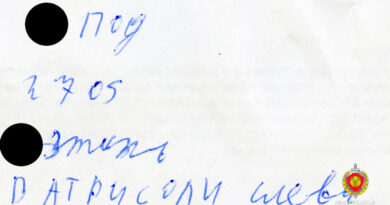 Под
2705
этажь
АТРИСОЛИ слева